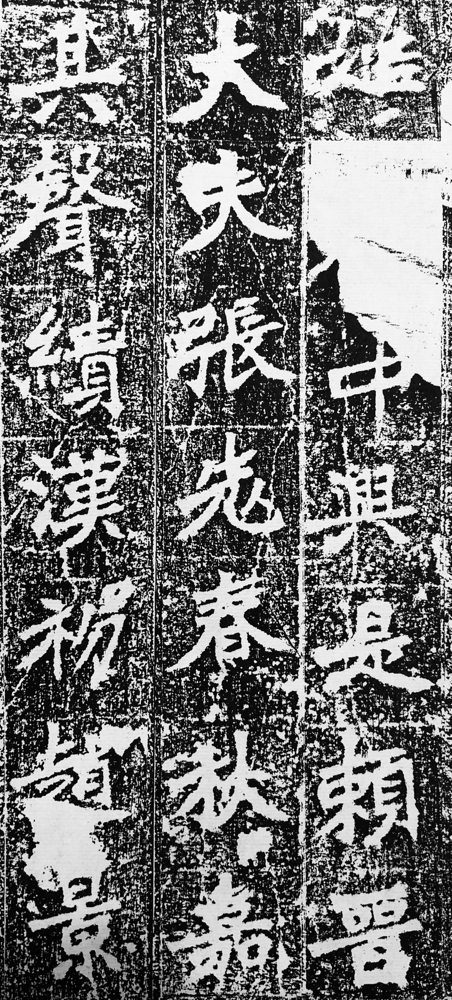 中興是賴晉
大夫張老春秋嘉
其聲績漢初趙景